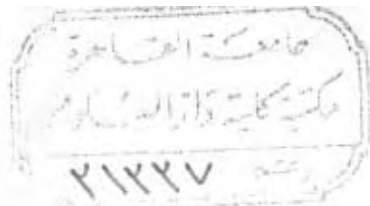 جامعة القاهرة
مكتبة كلية دار العلوم
٢١٢٢٧